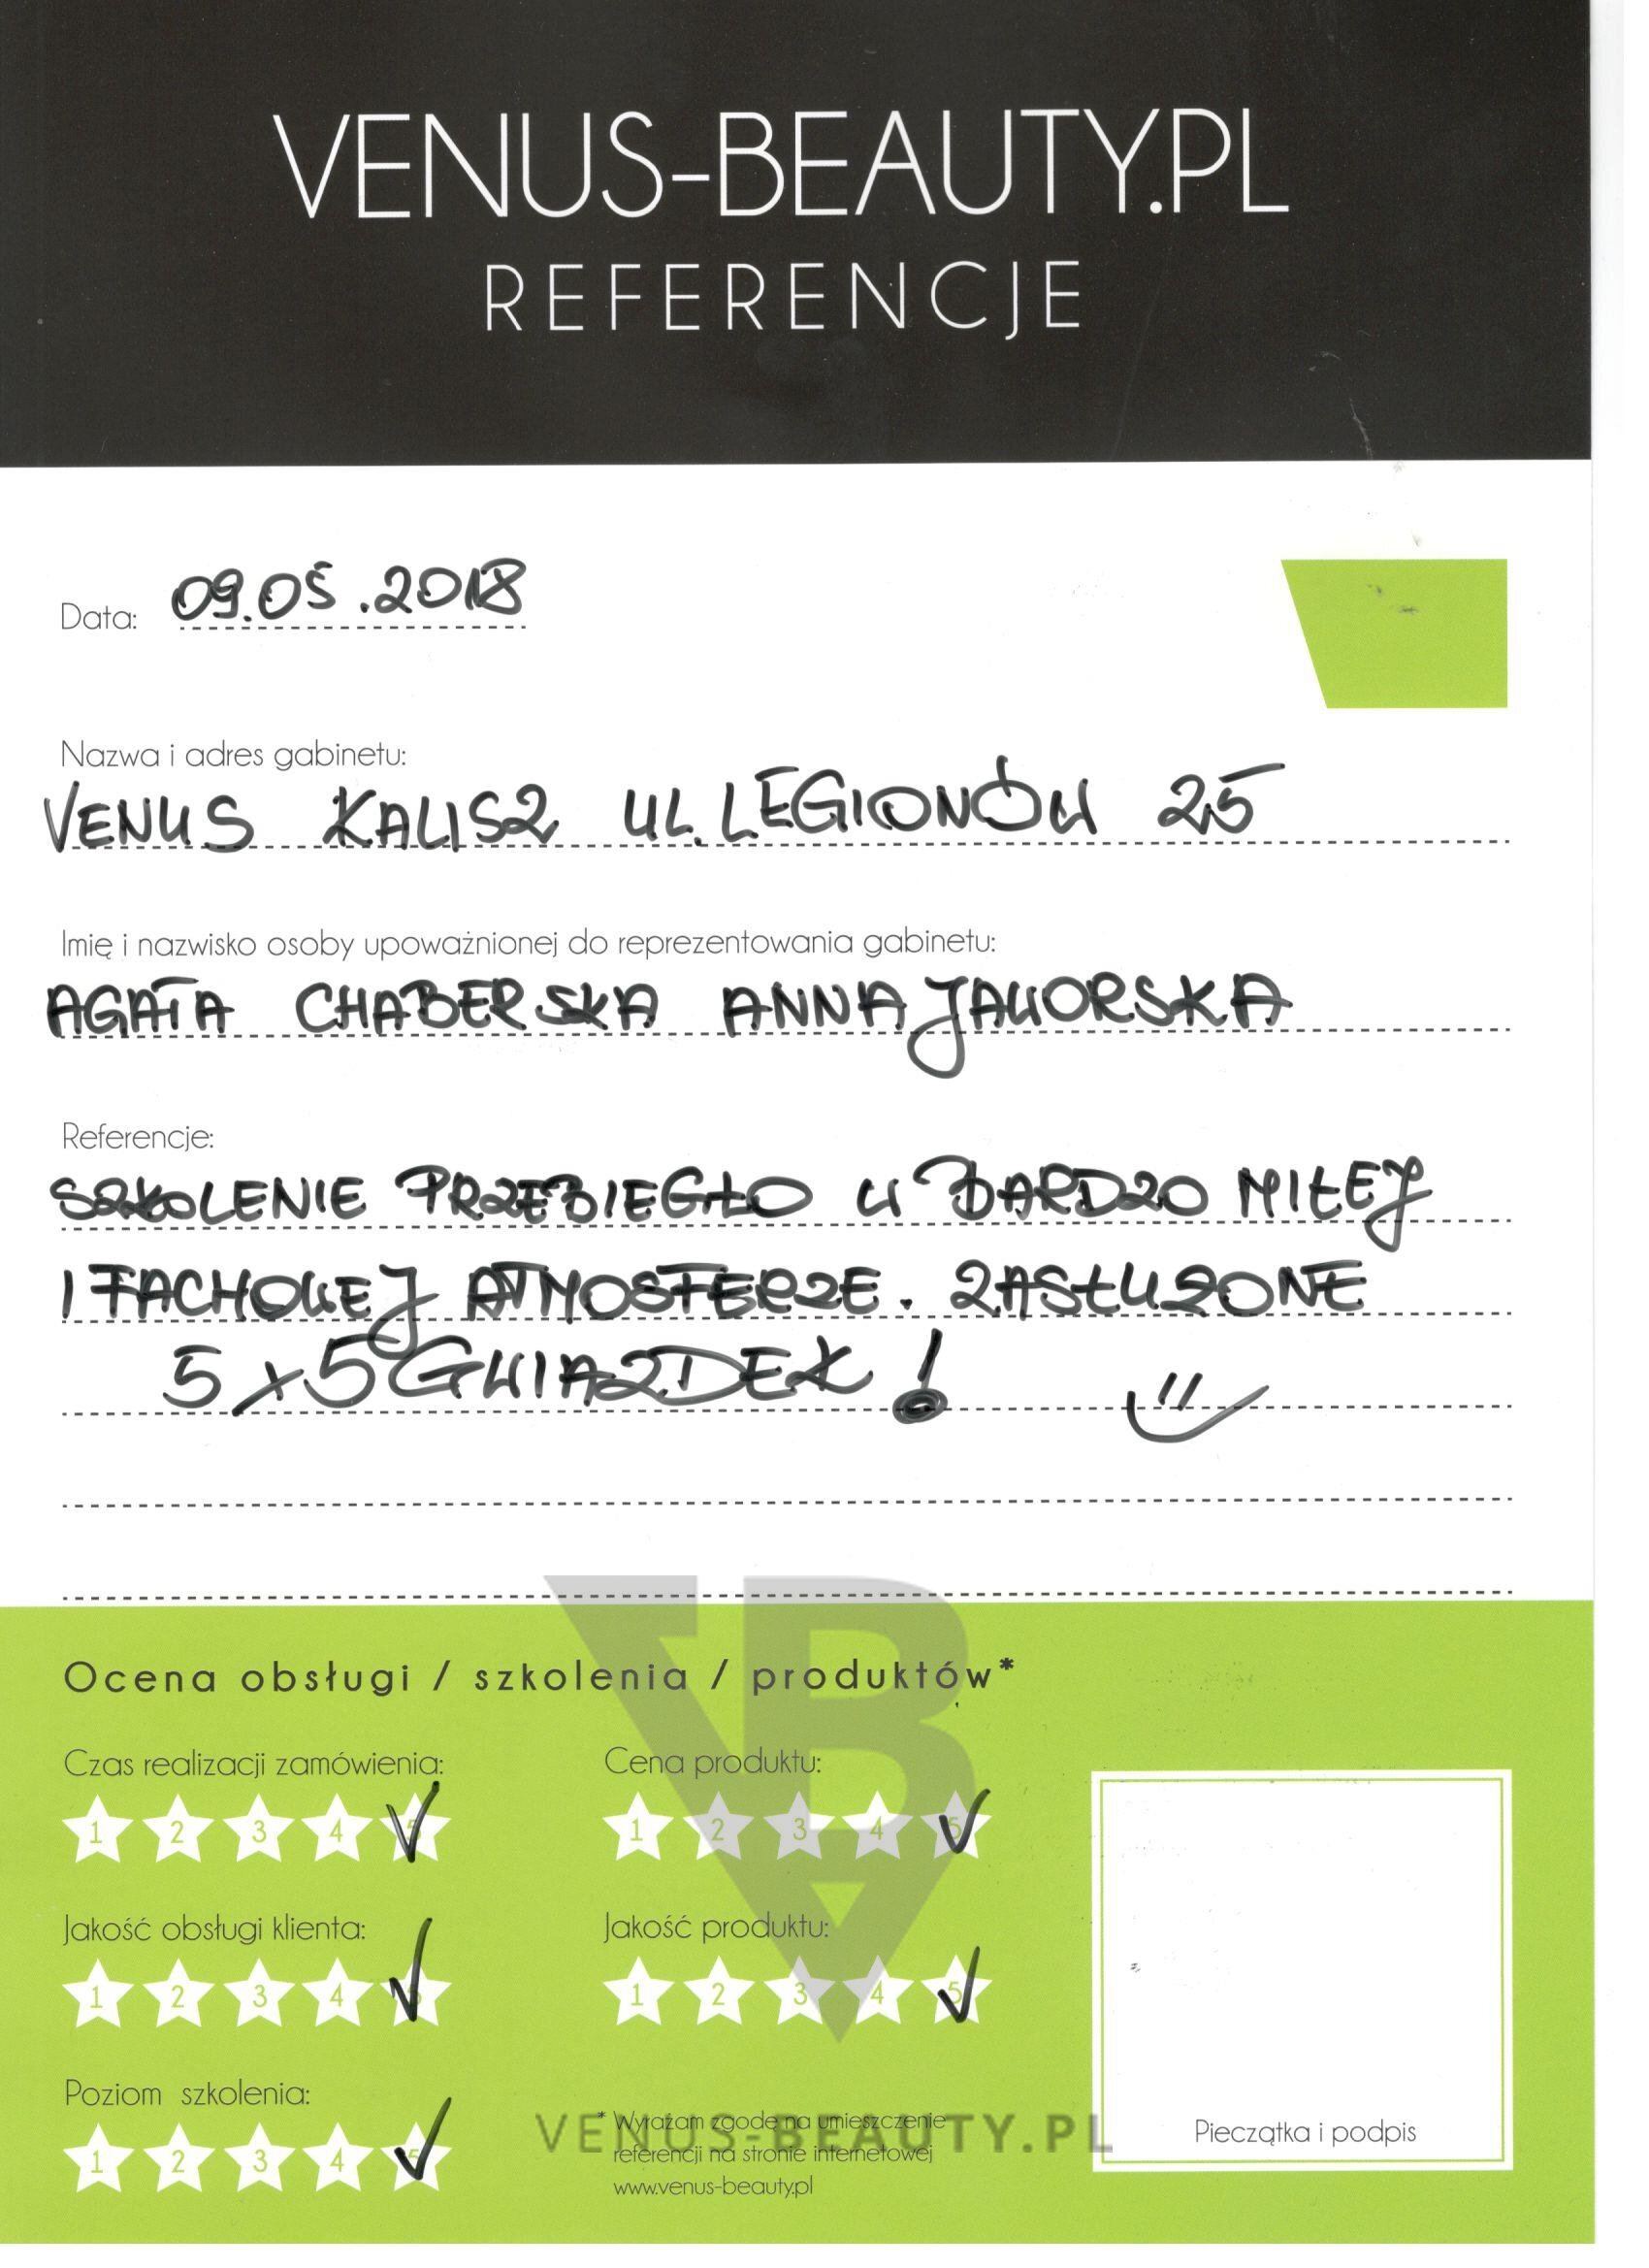 VENUS-BEAUTY.PL
REFERENCJE
Data: 09.05.2018
Nazwa i adres gabinetu:
VENUS KALISZ UL. LEGIONÓW 25
Imię i nazwisko osoby upoważnionej do reprezentowania gabinetu:
AGATA CHABERSKA ANNA JAWORSKA
Referencje:
SZKOLENIE PRZEBIEGŁO W BARDZO MIŁEJ
I FACHOWEJ ATMOSFERZE. ZASŁUZONE
5 x 5 GWIAZDEK!
Ocena obsługi / szkolenia / produktów*
Czas realizacji zamówienia:
1 2 3 4 5
Cena produktu:
1 2 3 4 5
Jakość obsługi klienta:
1 2 3 4 5
Jakość produktu:
1 2 3 4 5
Poziom szkolenia:
1 2 3 4 5
* Wyrażam zgodę na umieszczenie
referencji na stronie internetowej
www.venus-beauty.pl
VENUS-BEAUTY.PL
Pieczątka i podpis